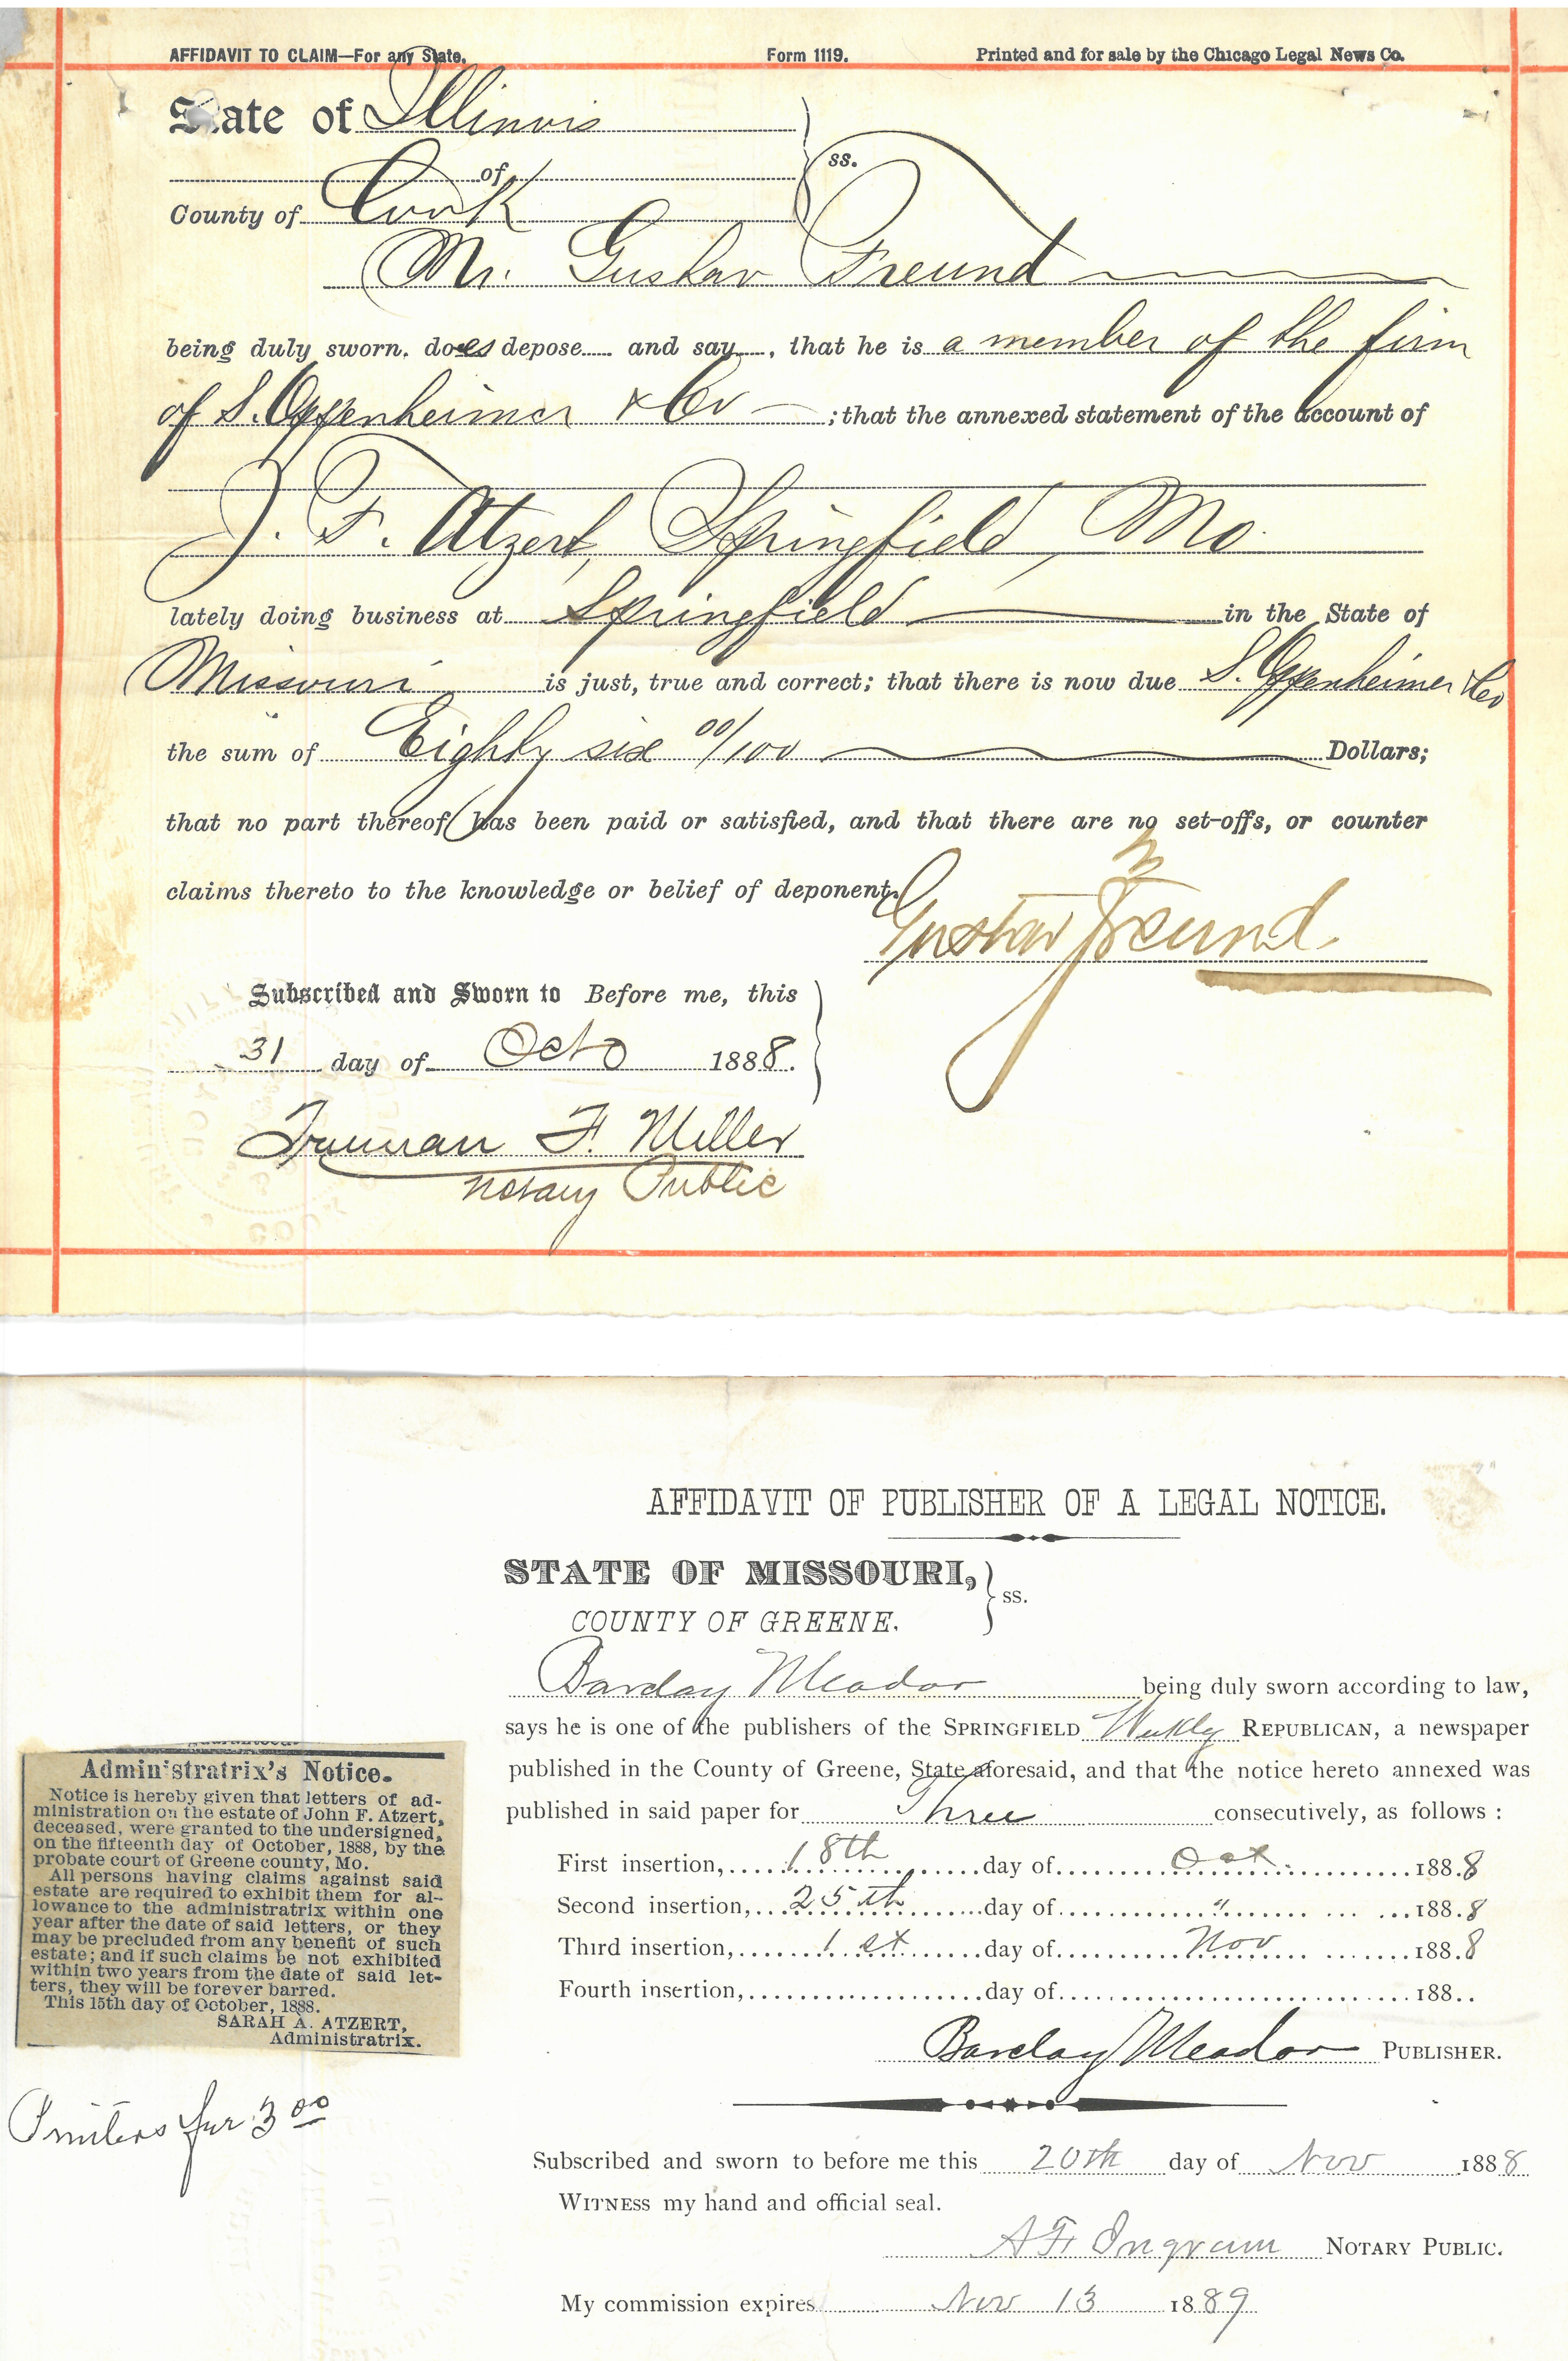 AFFIDAVIT TO CLAIM—For any State. Form 1119. Printed and for sale by the Chicago Legal News Co.
State of Illinois
of ss.
County of Cook
Mr. Gustav Freund
being duly sworn, does depose and say, that he is a member of the firm
of S. Oppenheimer & Co ; that the annexed statement of the account of
J. F. Atzert, Springfield, Mo.
lately doing business at Springfield in the State of
Missouri is just, true and correct; that there is now due S. Oppenheimer & Co
the sum of Eighty six 00/100 Dollars;
that no part thereof has been paid or satisfied, and that there are no set-offs, or counter
claims thereto to the knowledge or belief of deponent.
Gustav Freund
Subscribed and Sworn to Before me, this
31 day of Octo 1888.
Truman F. Miller
Notary Public
AFFIDAVIT OF PUBLISHER OF A LEGAL NOTICE.
STATE OF MISSOURI,
ss.
COUNTY OF GREENE.
Barclay Meador being duly sworn according to law,
says he is one of the publishers of the SPRINGFIELD Weekly REPUBLICAN, a newspaper
published in the County of Greene, State aforesaid, and that the notice hereto annexed was
published in said paper for Three consecutively, as follows :
First insertion, 18th day of Oct. 1888
Second insertion, 25th day of " 1888
Third insertion, 1st day of Nov 1888
Fourth insertion, day of 188..
Barclay Meador PUBLISHER.
Subscribed and sworn to before me this 20th day of Nov 1888
WITNESS my hand and official seal.
A F Ingram NOTARY PUBLIC.
My commission expires Nov 13 1889
Administratrix's Notice.
Notice is hereby given that letters of ad-
ministration on the estate of John F. Atzert,
deceased, were granted to the undersigned,
on the fifteenth day of October, 1888, by the
probate court of Greene county, Mo.
All persons having claims against said
estate are required to exhibit them for al-
lowance to the administratrix within one
year after the date of said letters, or they
may be precluded from any benefit of such
estate; and if such claims be not exhibited
within two years from the date of said let-
ters, they will be forever barred.
This 15th day of October, 1888.
SARAH A. ATZERT,
Administratrix.
Printers fur 3 00